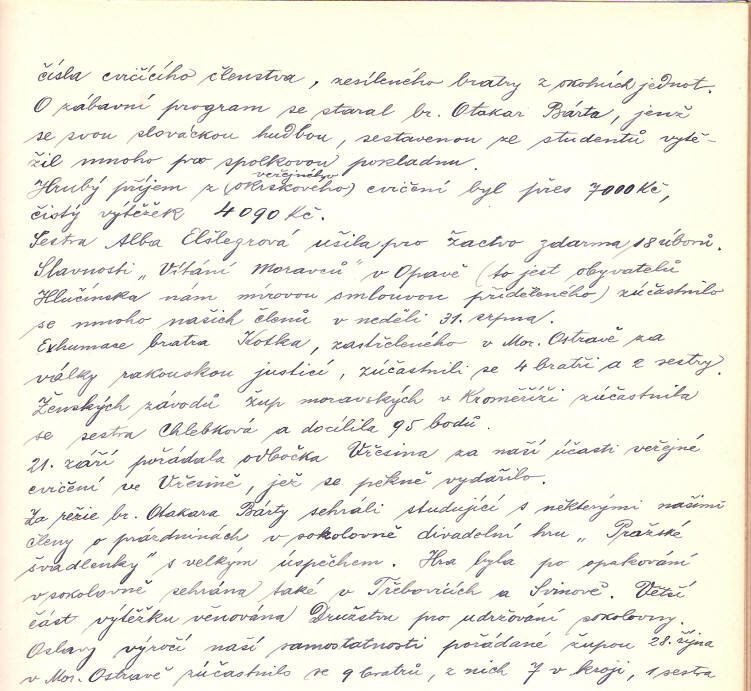 čísla cvičícího členstva, zesíleného bratry z okolních jednot.
O zábavní program se staral br. Otakar Bárta, jenž
se svou slováckou hudbou, sestavenou ze studentů vytě-
žil mnoho pro spolkovou pokladnu.
veřejného
Hrubý příjem z (okrskového) cvičení byl přes 7000 Kč,
čistý výtěžek 4090 Kč.
Sestra Alba Elšlegrová ušila pro žactvo zdarma 18 úborů.
Slavnosti „Vítání Moravců" v Opavě (to jest obyvatelů
Hlučínska nám mírovou smlouvou přiděleného) zúčastnilo
se mnoho našich členů v neděli 31. srpna.
Exhumace bratra Kotka, zastřeleného v Mor. Ostravě za
války rakouskou justicí, zúčastnili se 4 bratři a 2 sestry.
Ženských závodů žup moravských v Kroměříži zúčastnila
se sestra Chlebková a docílila 95 bodů.
21. září pořádala odbočka Vřesina za naší účasti veřejné
cvičení ve Vřesině, jež se pěkně vydařilo.
Za režie br. Otakara Bárty sehráli studující s některými našimi
členy o prázdninách v sokolovně divadelní hru „Pražské
švadlenky" s velkým úspěchem. Hra byla po opakování
v sokolovně sehrána také v Třebovicích a Svinově. Větší
část výtěžku věnována Družstvu pro udržování sokolovny.
Oslavy výročí naší samostatnosti pořádané župou 28. října
v Mor. Ostravě zúčastnilo se 9 bratrů, z nich 7 v kroji, 1 sestra